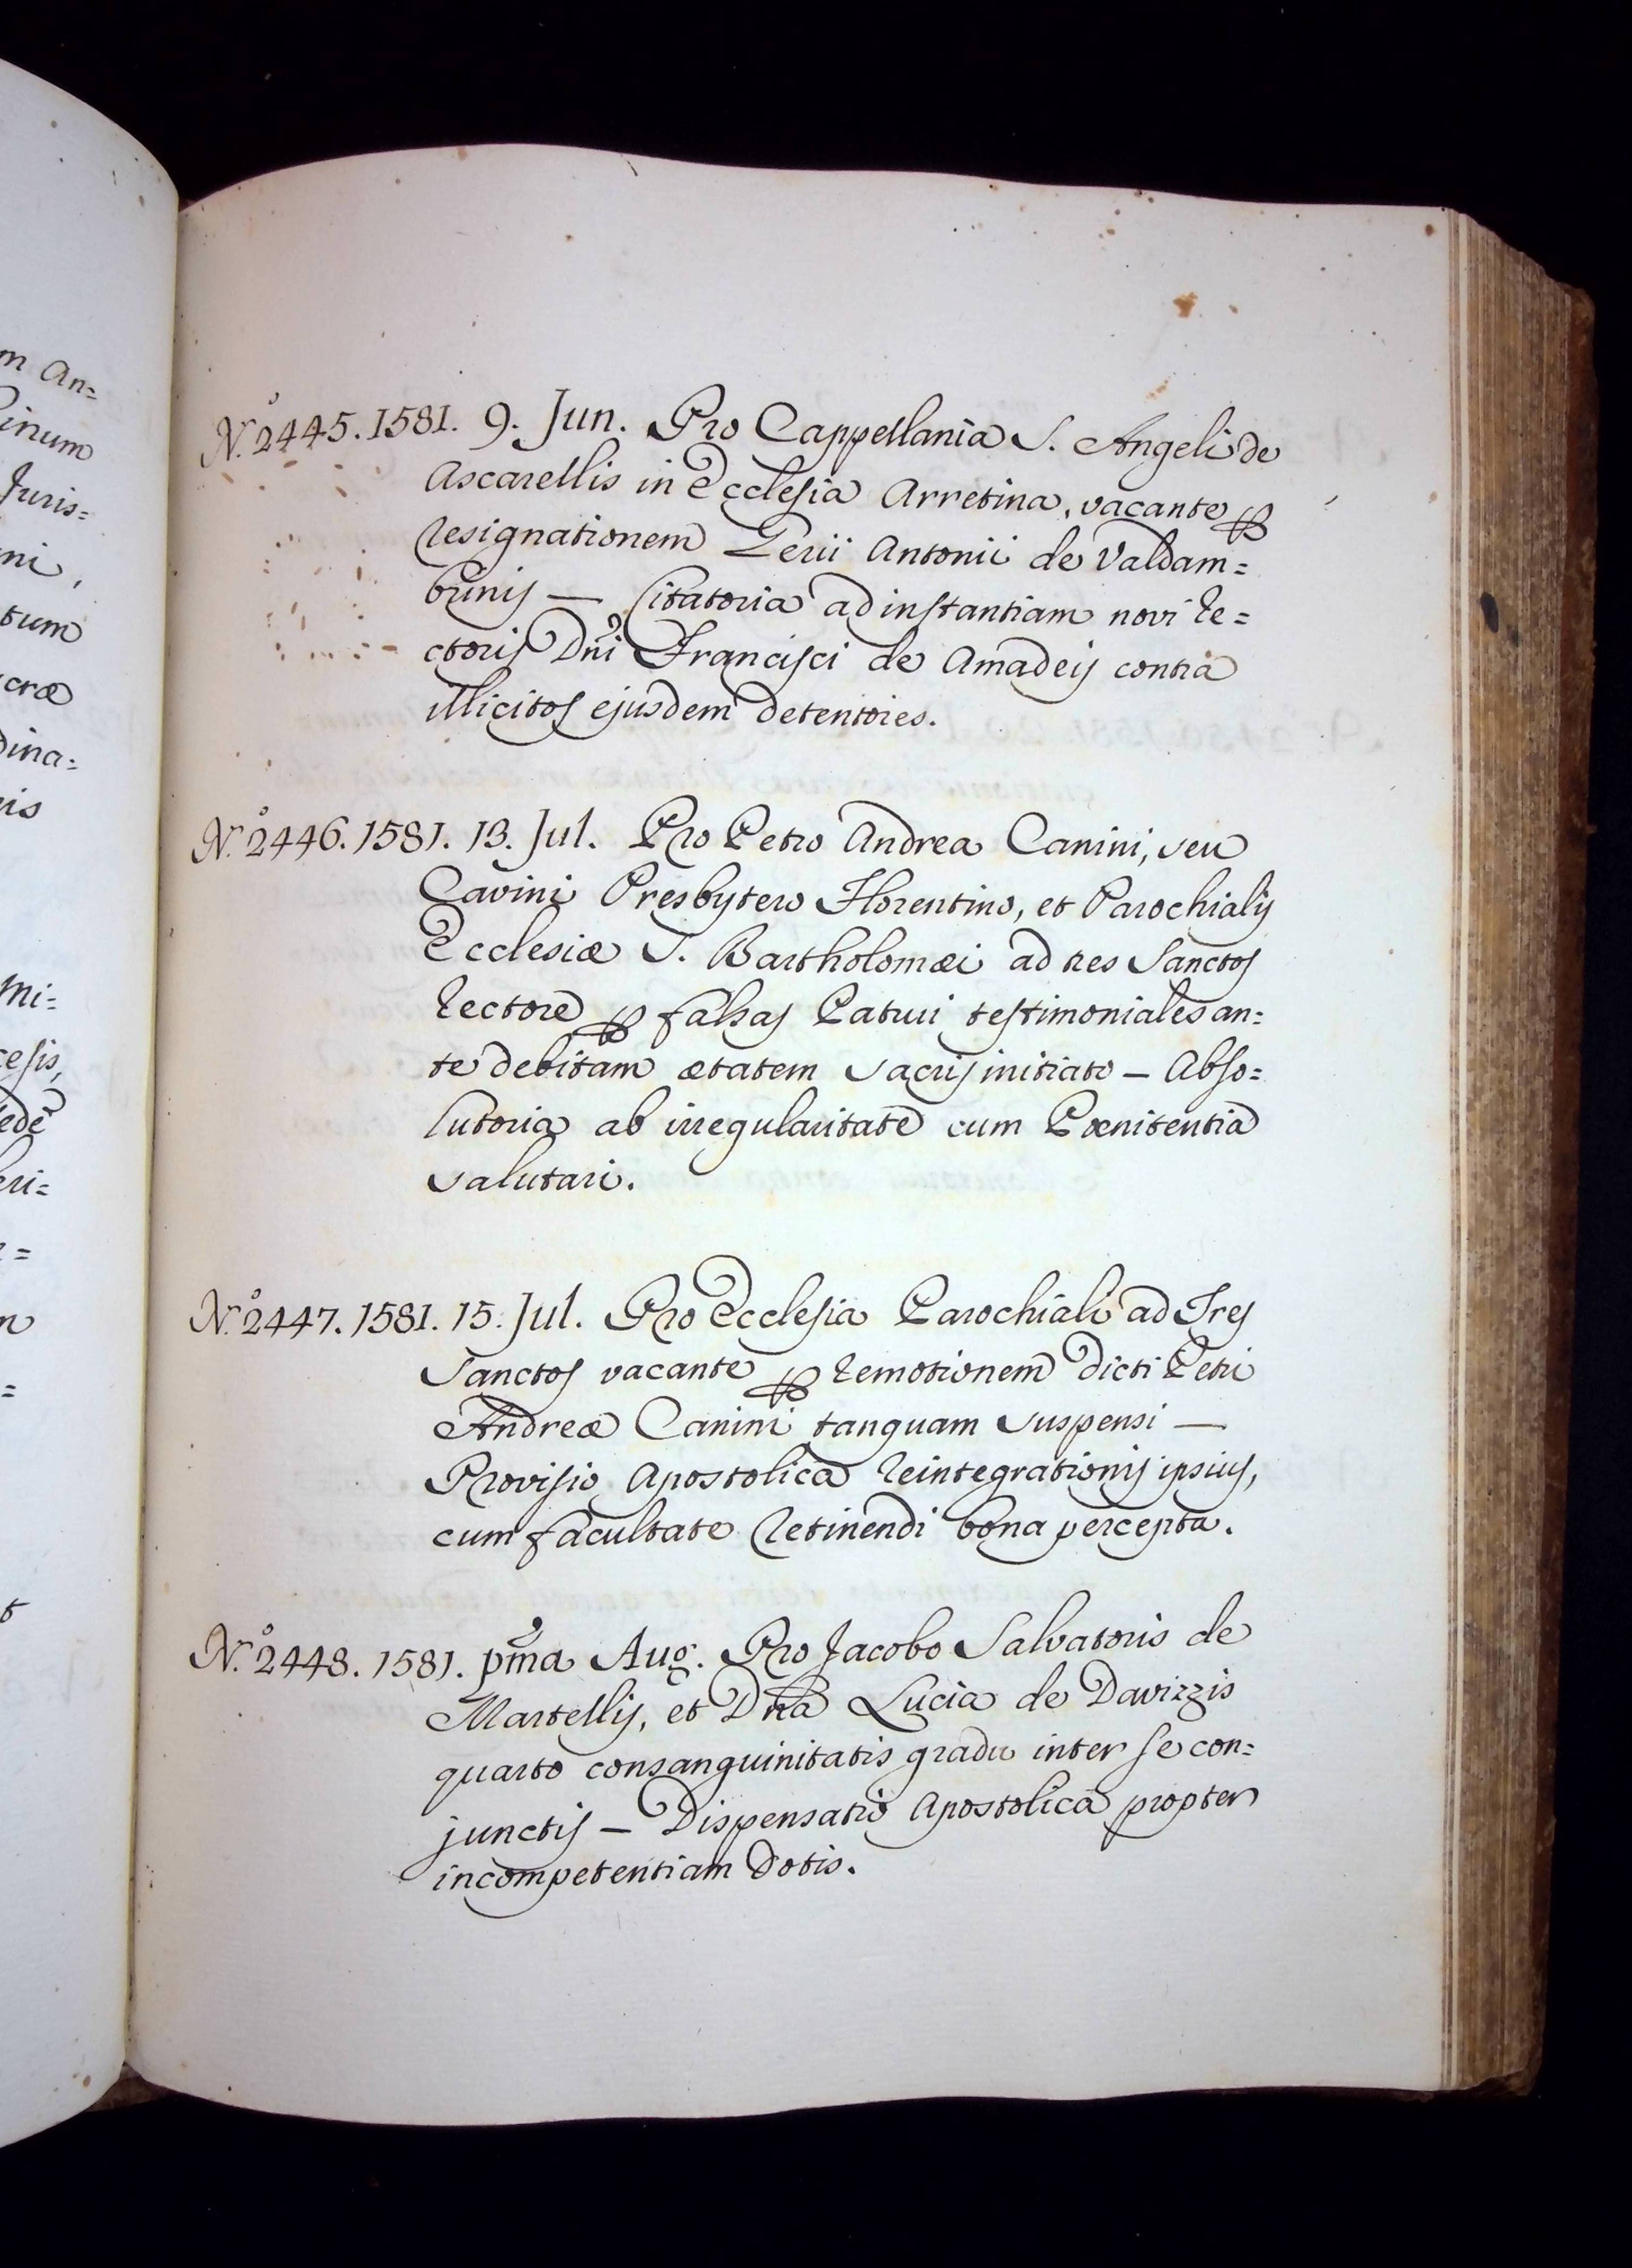 m An=
inum
Juris=
ni,
tum
cræ
dina=
is
Mi=
cesis,
ede
eri=
=
n
=
t
N.º 2445. 1581. 9. Jun. Pro Cappellania S. Angeli de
Ascarellis in Ecclesia Arretina, vacante ꝑ
resignationem Gerii Antonii de Valdam=
brinis — Citatoria ad instantiam novi Re=
ctoris Dni Francisci de Amadeis contra
illicitos ejusdem detentores.
N.º 2446. 1581. 13. Jul. Pro Petro Andrea Canini, seu
Cavini Presbytero Florentino, et Parochialis
Ecclesiæ S. Bartholomæi ad tres Sanctos
Rectore ꝑ falsas Patrui testimoniales an=
te debitam ætatem sacris initiato — Abso=
lutoria ab irregularitate cum Pœnitentia
salutari.
N.º 2447. 1581. 15. Jul. Pro Ecclesia Parochiali ad Tres
Sanctos vacante ꝑ remotionem dicti Petri
Andreæ Canini tanquam suspensi —
Provisio Apostolica reintegrationis ipsius,
cum facultate retinendi bona percepta.
N.º 2448. 1581. pma Aug. Pro Jacobo Salvatoris de
Martellis, et Dna Lucia de Davizzis
quarto consanguinitatis gradu inter se con=
junctis — Dispensatio Apostolica propter
incompetentiam Dotis.